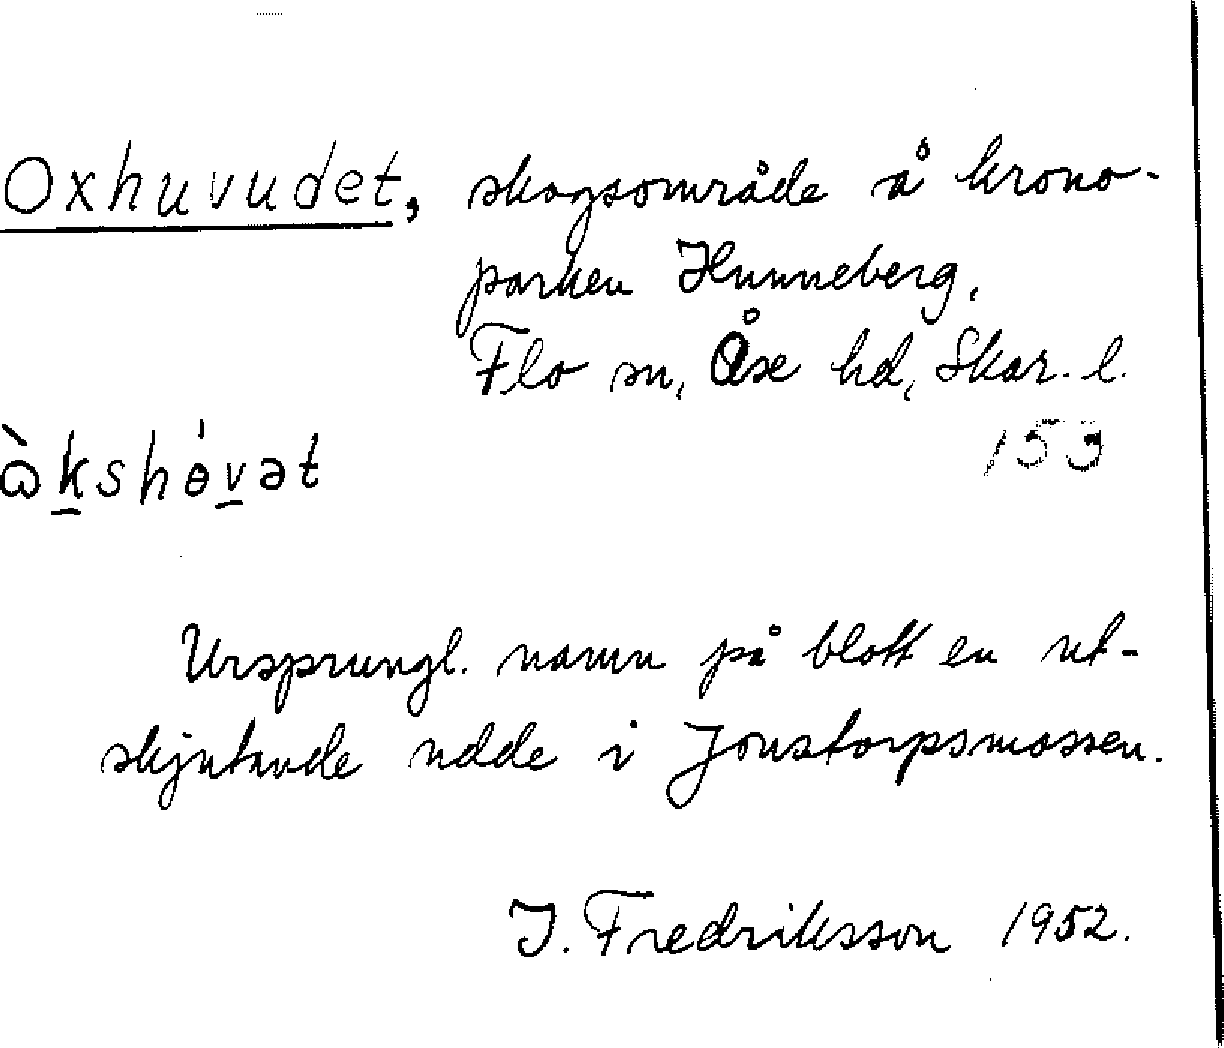 Oxhuvudet, skogsområde å krono-
parken Hunneberg,
Flo sn, Åse hd, Skar. l.
153
ὼk̲shɵ́v̲ət
Ursprungl. namn på blott en ut-
skjutande udde i Jonstorpsmossen.
I. Fredriksson 1952.